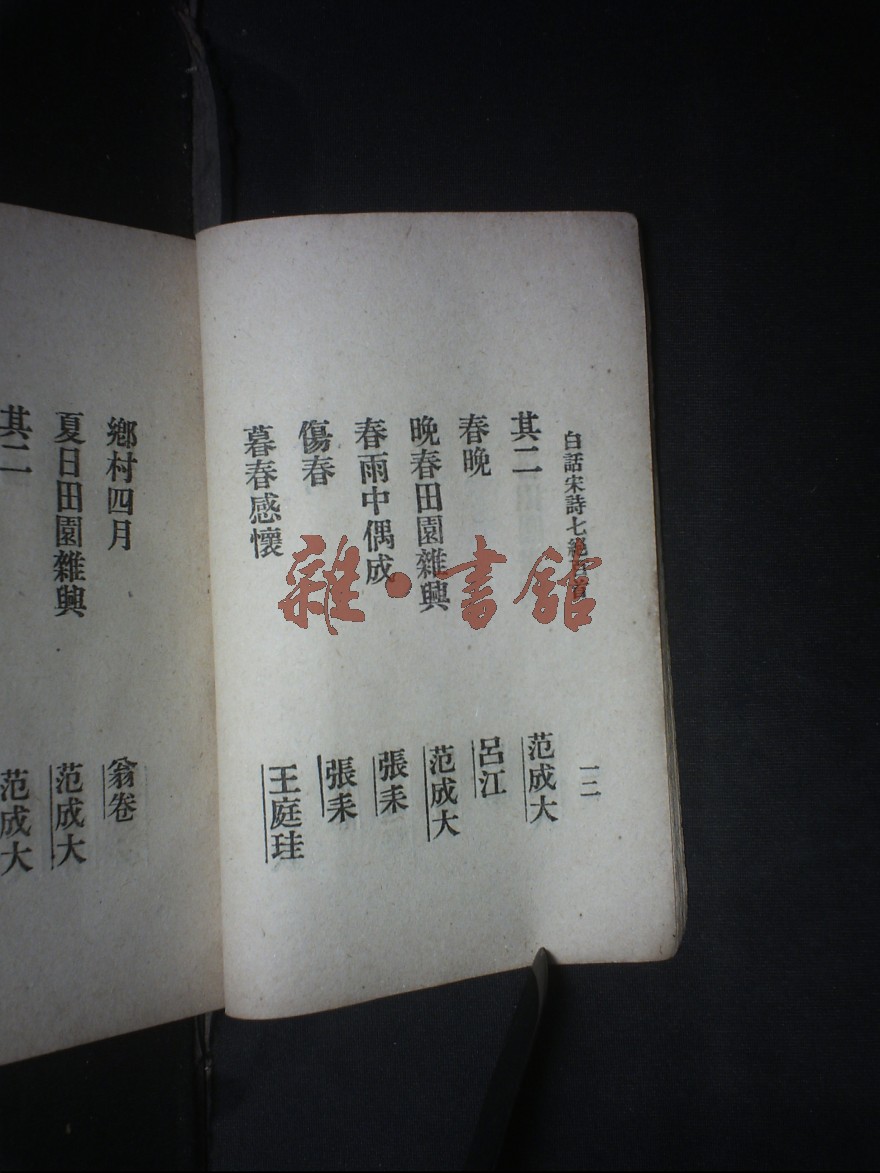 白話宋詩七絕百首
一二
其二 范成大
春晚 呂江
晚春田園雜興 范成大
春雨中偶成 張耒
傷春 張耒
暮春感懷 王庭珪
鄉村四月 翁卷
夏日田園雜興 范成大
其二 范成大
雜·書館